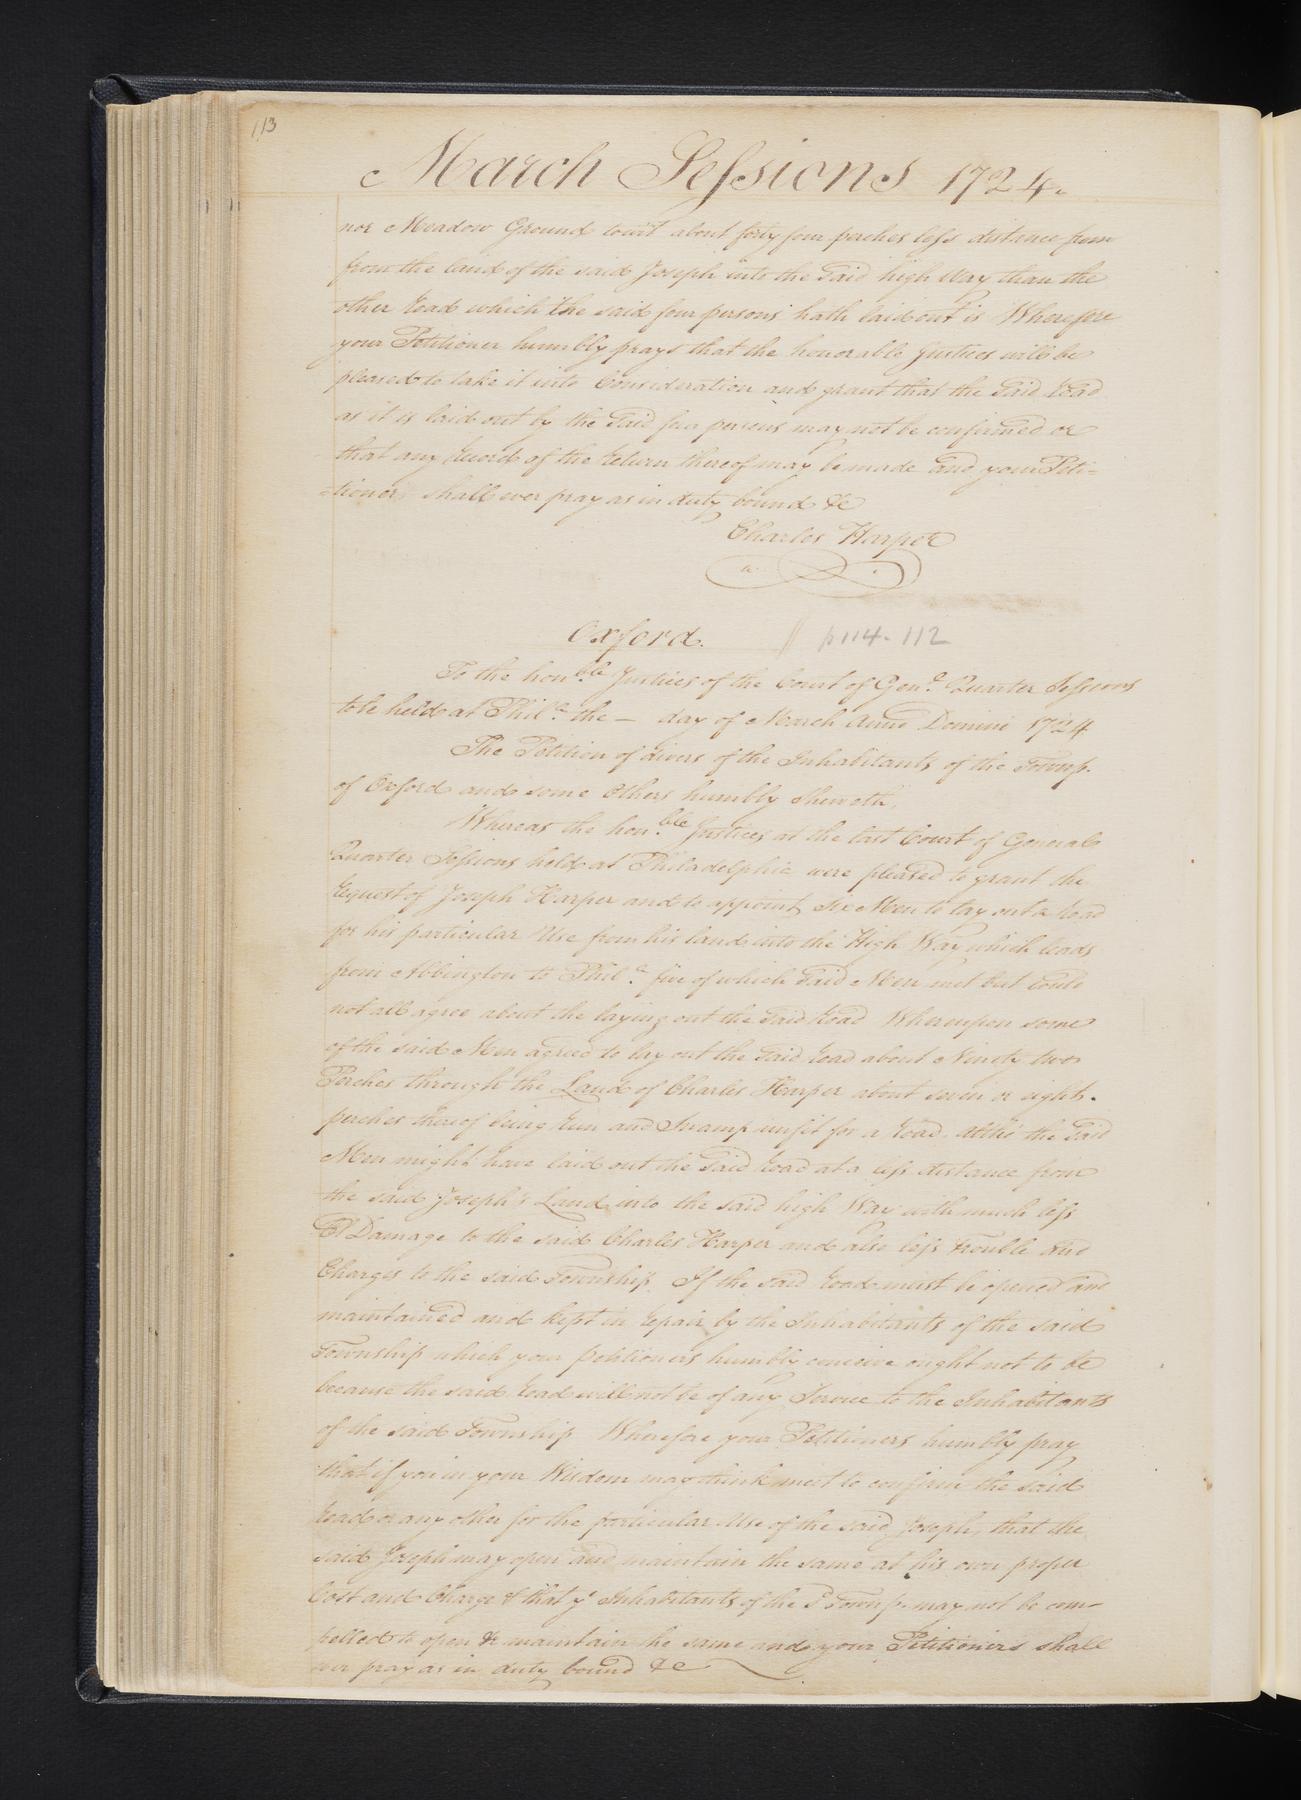 113
March Sessions 1724.
nor Meadow Ground towit about forty four perches less distance from
from the land of the said Joseph into the said high Way than the
other road which the said four persons hath laid out is Wherefore
your Petitioner humbly prays that the honorable Justices will be
pleased to take it into Consideration and grant that the said road
as it is laid out by the said four persons may not be confirmed or
that any record of the return thereof may be made and your Peti-
-tioner shall ever pray as in duty bound &c
Charles Harper
Oxford. // p 114-112
To the honble Justices of the Court of Genl Quarter Sessions
to be held at Phila the — day of March Anno Domini 1724
The Petition of divers of the Inhabitants of the Townsp.
of Oxford and some others humbly sheweth,
Whereas the honble Justices at the last Court of General
Quarter Sessions held at Philadelphia were pleased to grant the
request of Joseph Harper and to appoint Six Men to lay out a road
for his particular Use from his land into the High Way which leads
from Abbington to Phila five of which said Men met but could
not all agree about the laying out the said road Whereupon some
of the said Men agreed to lay out the said road about Ninety two
Perches through the Land of Charles Harper about seven or eight
perches thereof being run and Swamp unfit for a road. altho' the said
Men might have laid out the said road at a less distance from
the said Joseph's Land into the said high Way with much less
Damage to the said Charles Harper and also less trouble and
Charges to the said Township. If the said road must be opened and
maintained and kept in repair by the Inhabitants of the said
Township which your petitioners humbly conceive ought not to be
because the said road will not be of any Service to the Inhabitants
of the said Township Wherefore your Petitioners humbly pray
that if you in your Wisdom may think meet to confirm the said
road or any other for the particular Use of the said Joseph, that the
said Joseph may open and maintain the same at his own proper
Cost and Charge & that ye Inhabitants of the sd Townsp. may not be com-
pelled to open & maintain the same and your Petitioners shall
ever pray as in duty bound &c